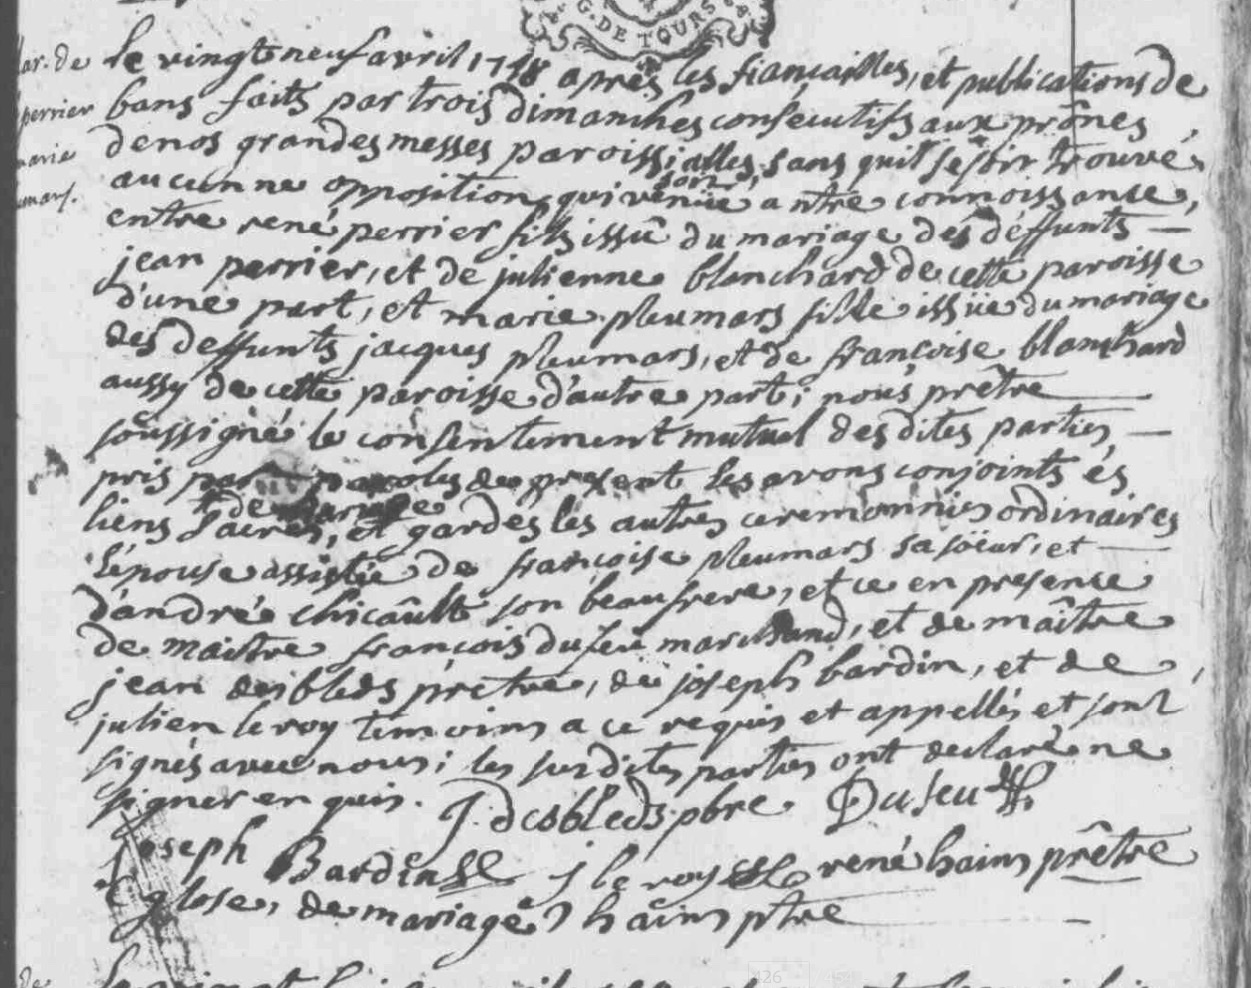 G. DE TOURS
mar. de le vingt neuf avril 1748 apres les fiançailles, et publications de
perrier bans faits par trois dimanches consecutifs aux prônes,
marie de nos grandes messes paroissialles, sans quil se soit trouvé
aucunne opposition, qui soit venüe a ntre connoissance,
entre rené perrier fils issû du mariage des déffunts
jean perrier, et de julienne blanchard de cette paroisse
d'une part, et marie pleumars fille issüe du mariage
des deffunts jacques pleumars, et de françoise blanchard
aussy de cette paroisse d'autre part; nous prêtre
soussigné le consentement mutuel des dites parties
pris par paroles de present les avons conjoints és
liens sacrés, et gardés les autres ceremonnies ordinaires
de mariage
l'épouse assistée de françoise pleumars sa soeur, et
d'andré chicâult son beaufrere, et ce en presence
de maitre françois dufeu marchand, et de maître
jean desbleds prêtre, de joseph bardin, et de,
julien le roy temoins a ce requis et appellés et sont
signés avec nous; les susdites parties ont declaré ne
signer en quis. J. desbleds pbre Dufeu
joseph Bardin j le roy rené hains prêtre
glose, de mariage, hains ptre
de
426